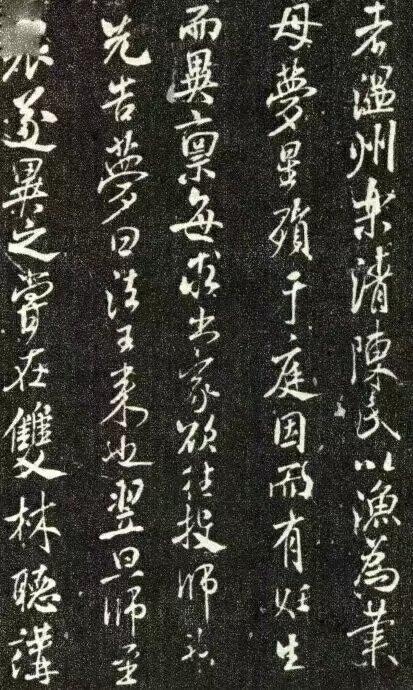 者温州樂清陳氏以漁為業
母夢星殞于庭因而有妊生
而異禀每求出家欲往投師
先告夢曰法王来也翌旦師至
遂異之嘗在雙林聽講